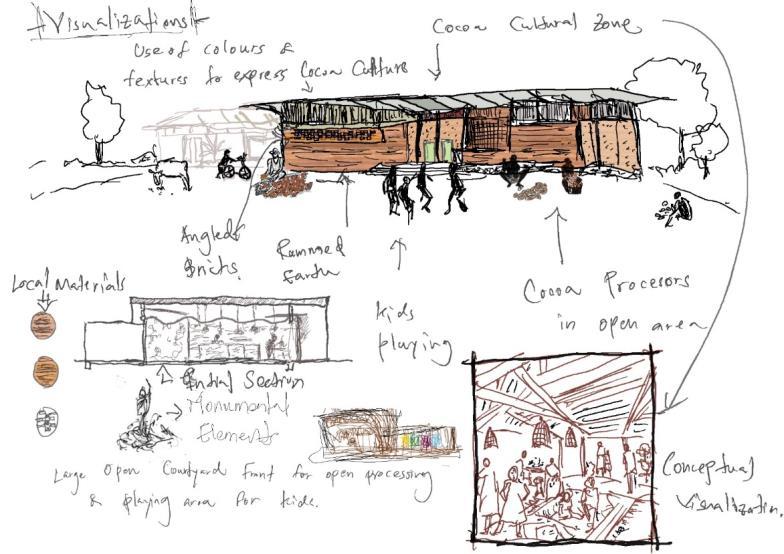 Visualizations
Cocoa Cultural Zone
Use of colours &
textures to express Cocoa Culture
Angled
Bricks.
Rammed
Earth
Kids
playing
Cocoa Procesors
in open area
Local Materials
Initial Section
Monumental
Elements
Large Open Courtyard Front for open processing
& playing area for kids.
Conceptual
Visualization.